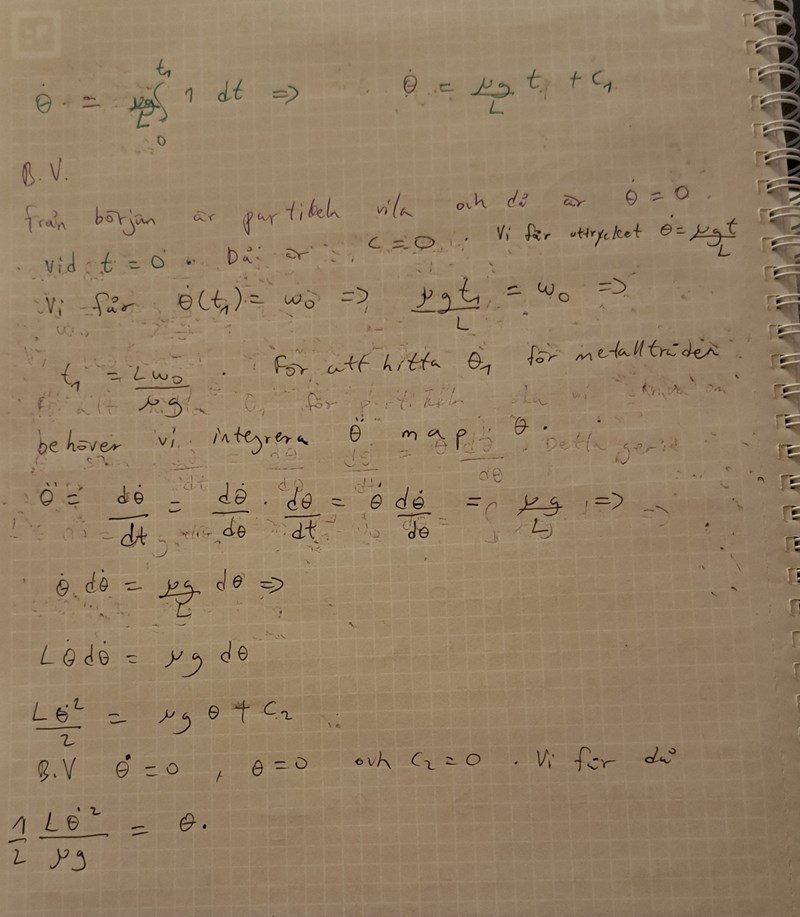 θ̇ = μg/L ∫₀^t₁ 1 dt => θ̇ = μg/L t + C₁
B.V.
Från början är partikeln vila och då är θ̇ = 0.
vid t = 0. Då är C = 0. Vi får uttrycket θ̇ = μgt/L
Vi får θ̇(t₁) = ω₀ => μgt₁/L = ω₀ =>
t₁ = Lω₀/μg. För att hitta θ₁ för metalltråden
behöver vi integrera θ̈ map θ.
θ̈ = dθ̇/dt = dθ̇/dθ · dθ/dt = θ̇ dθ̇/dθ = μg/L =>
θ̇ dθ̇ = μg/L dθ =>
Lθ̇dθ̇ = μg dθ
Lθ̇²/2 = μg θ + C₂
B.V θ̇ = 0, θ = 0 och C₂ = 0. Vi får då
1/2 Lθ̇²/μg = θ.